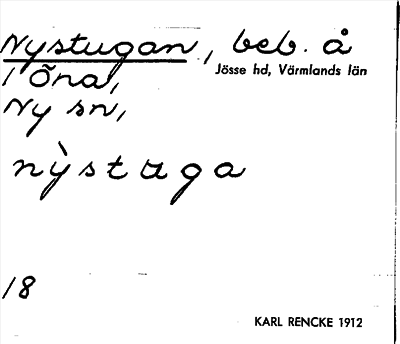 Nystugan, beb. å
1 Öna, Jösse hd, Värmlands län
Ny sn,
nỳstuga
18
KARL RENCKE 1912